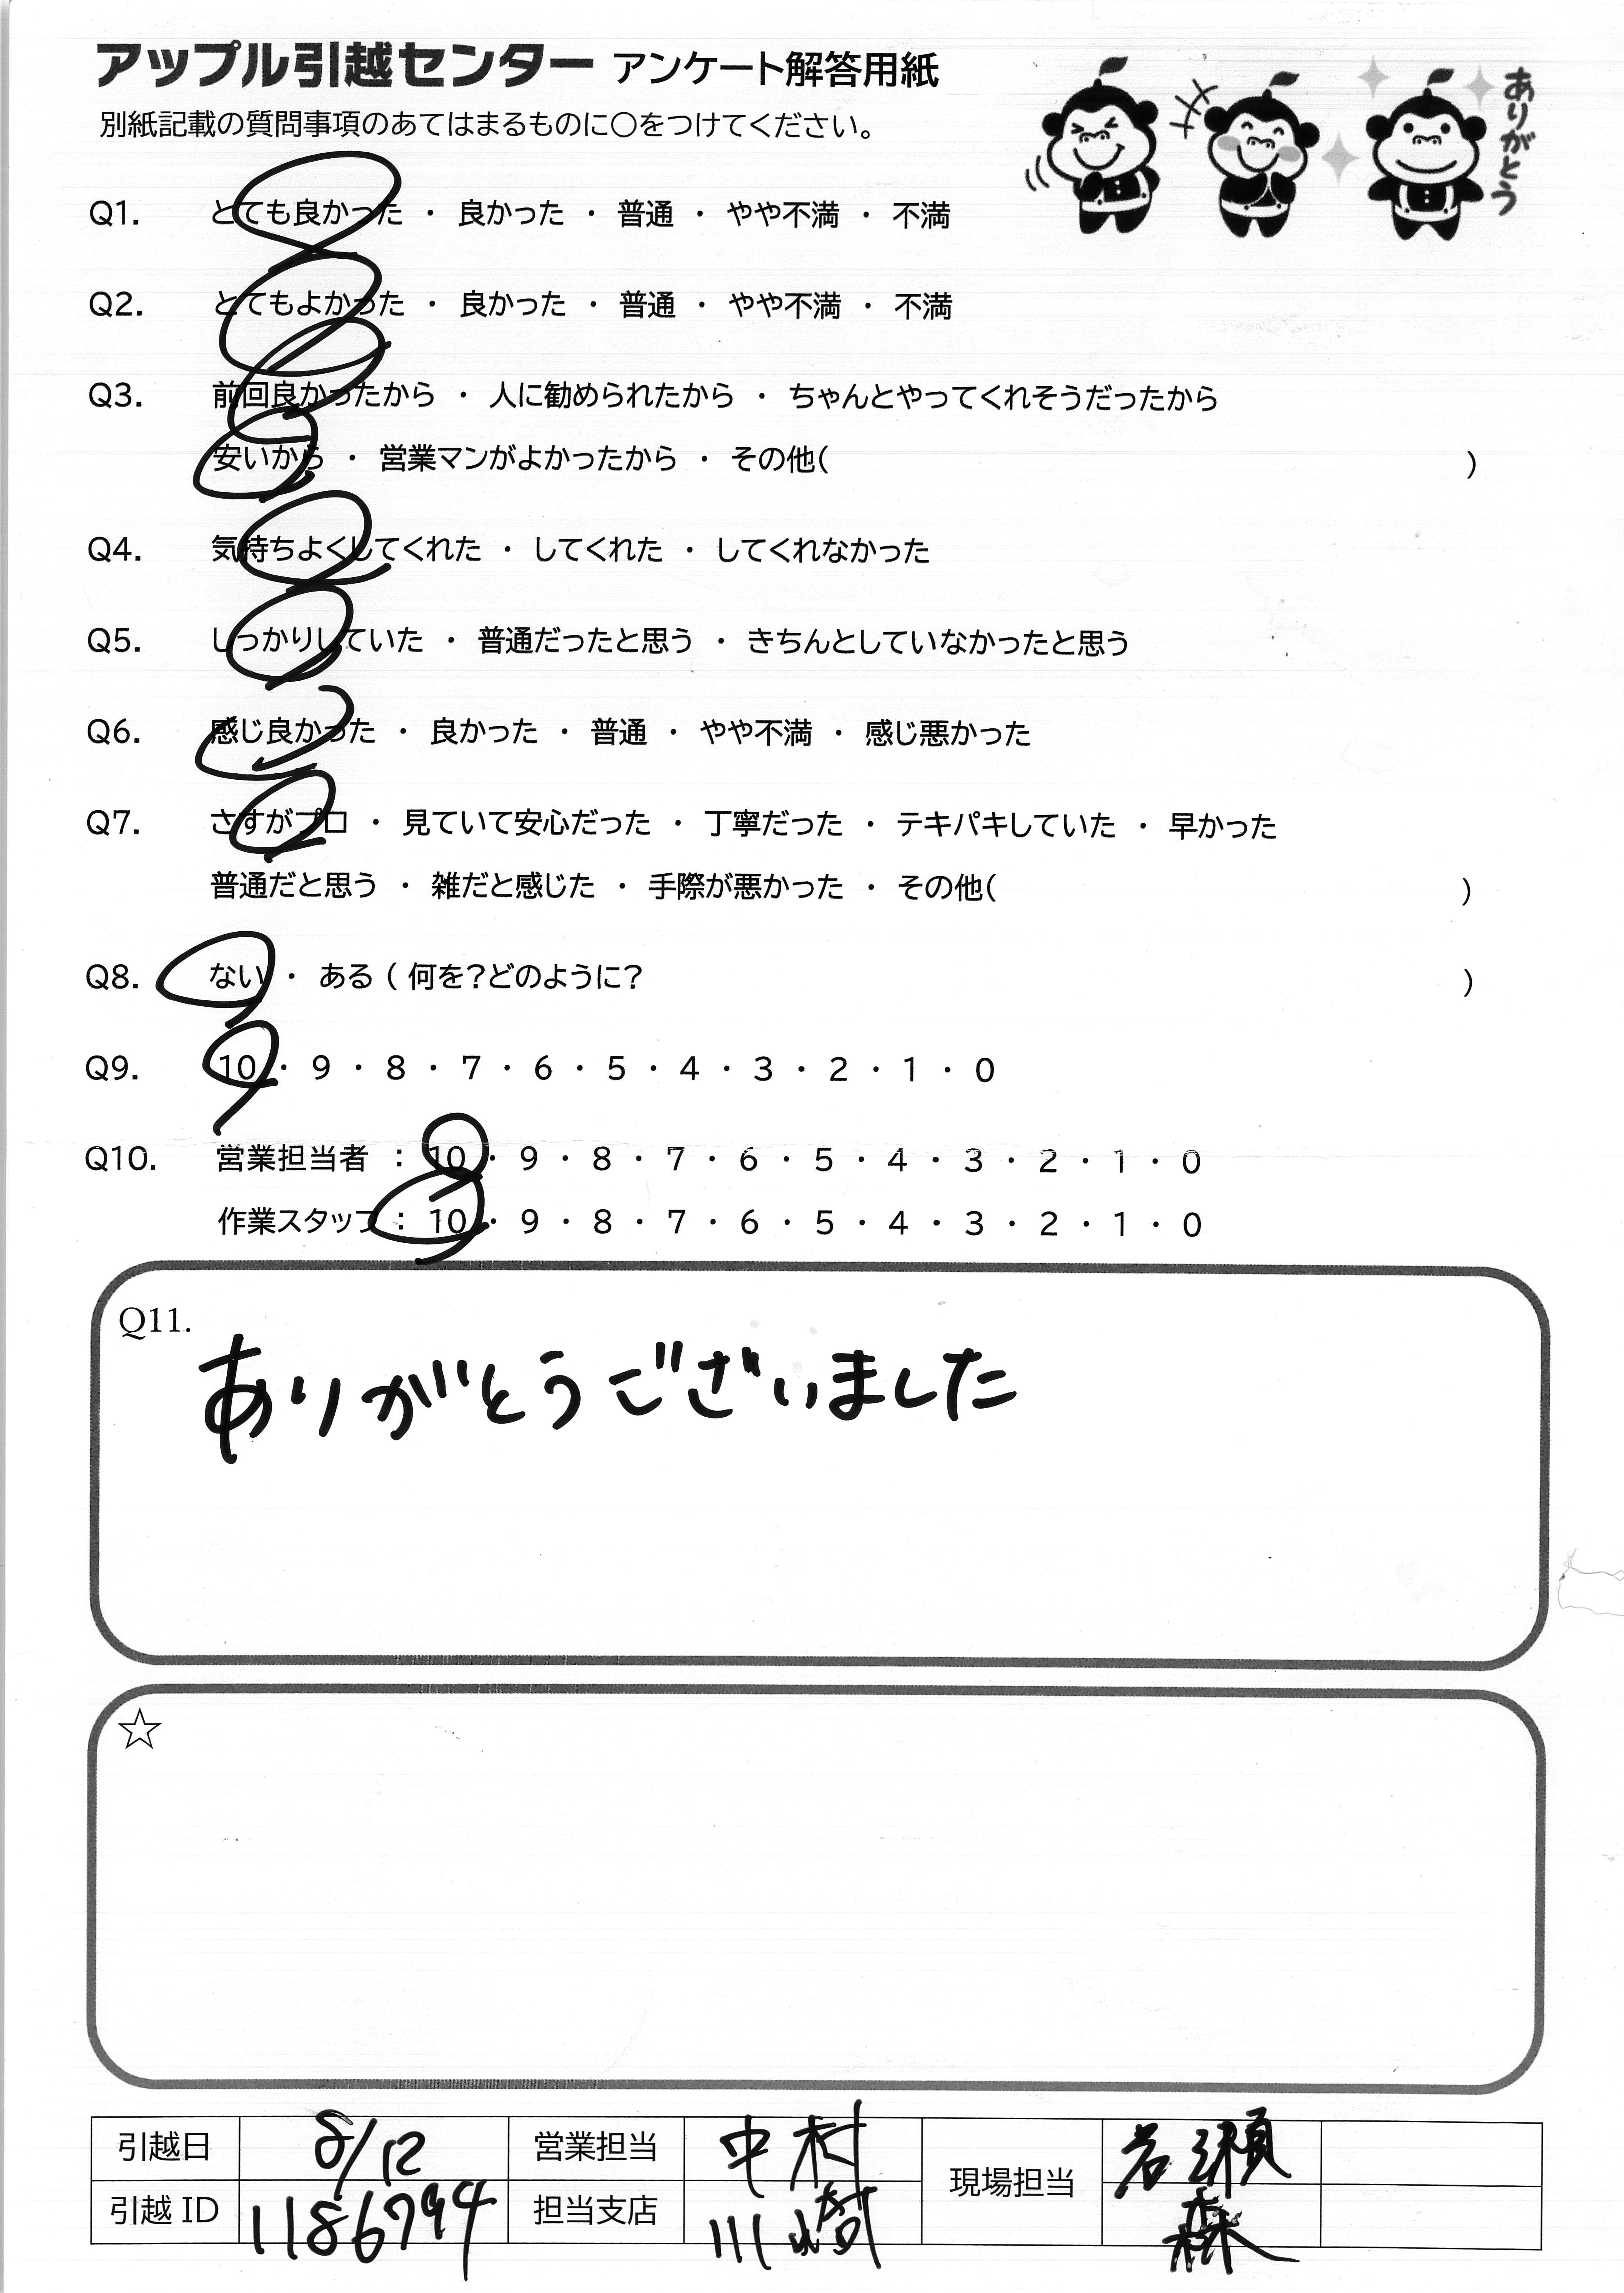 アップル引越センター アンケート解答用紙
別紙記載の質問事項のあてはまるものに〇をつけてください。
ありがとう
Q1. とても良かった ・ 良かった ・ 普通 ・ やや不満 ・ 不満
Q2. とてもよかった ・ 良かった ・ 普通 ・ やや不満 ・ 不満
Q3. 前回良かったから ・ 人に勧められたから ・ ちゃんとやってくれそうだったから
安いから ・ 営業マンがよかったから ・ その他( )
Q4. 気持ちよくしてくれた ・ してくれた ・ してくれなかった
Q5. しっかりしていた ・ 普通だったと思う ・ きちんとしていなかったと思う
Q6. 感じ良かった ・ 良かった ・ 普通 ・ やや不満 ・ 感じ悪かった
Q7. さすがプロ ・ 見ていて安心だった ・ 丁寧だった ・ テキパキしていた ・ 早かった
普通だと思う ・ 雑だと感じた ・ 手際が悪かった ・ その他( )
Q8. ない ・ ある ( 何を?どのように? )
Q9. 10 ・ 9 ・ 8 ・ 7 ・ 6 ・ 5 ・ 4 ・ 3 ・ 2 ・ 1 ・ 0
Q10. 営業担当者 : 10 ・ 9 ・ 8 ・ 7 ・ 6 ・ 5 ・ 4 ・ 3 ・ 2 ・ 1 ・ 0
作業スタッフ : 10 ・ 9 ・ 8 ・ 7 ・ 6 ・ 5 ・ 4 ・ 3 ・ 2 ・ 1 ・ 0
Q11.
ありがとうございました
☆
引越日 8/12 営業担当 中村 現場担当 岩瀬
引越 ID 1186794 担当支店 川崎 森